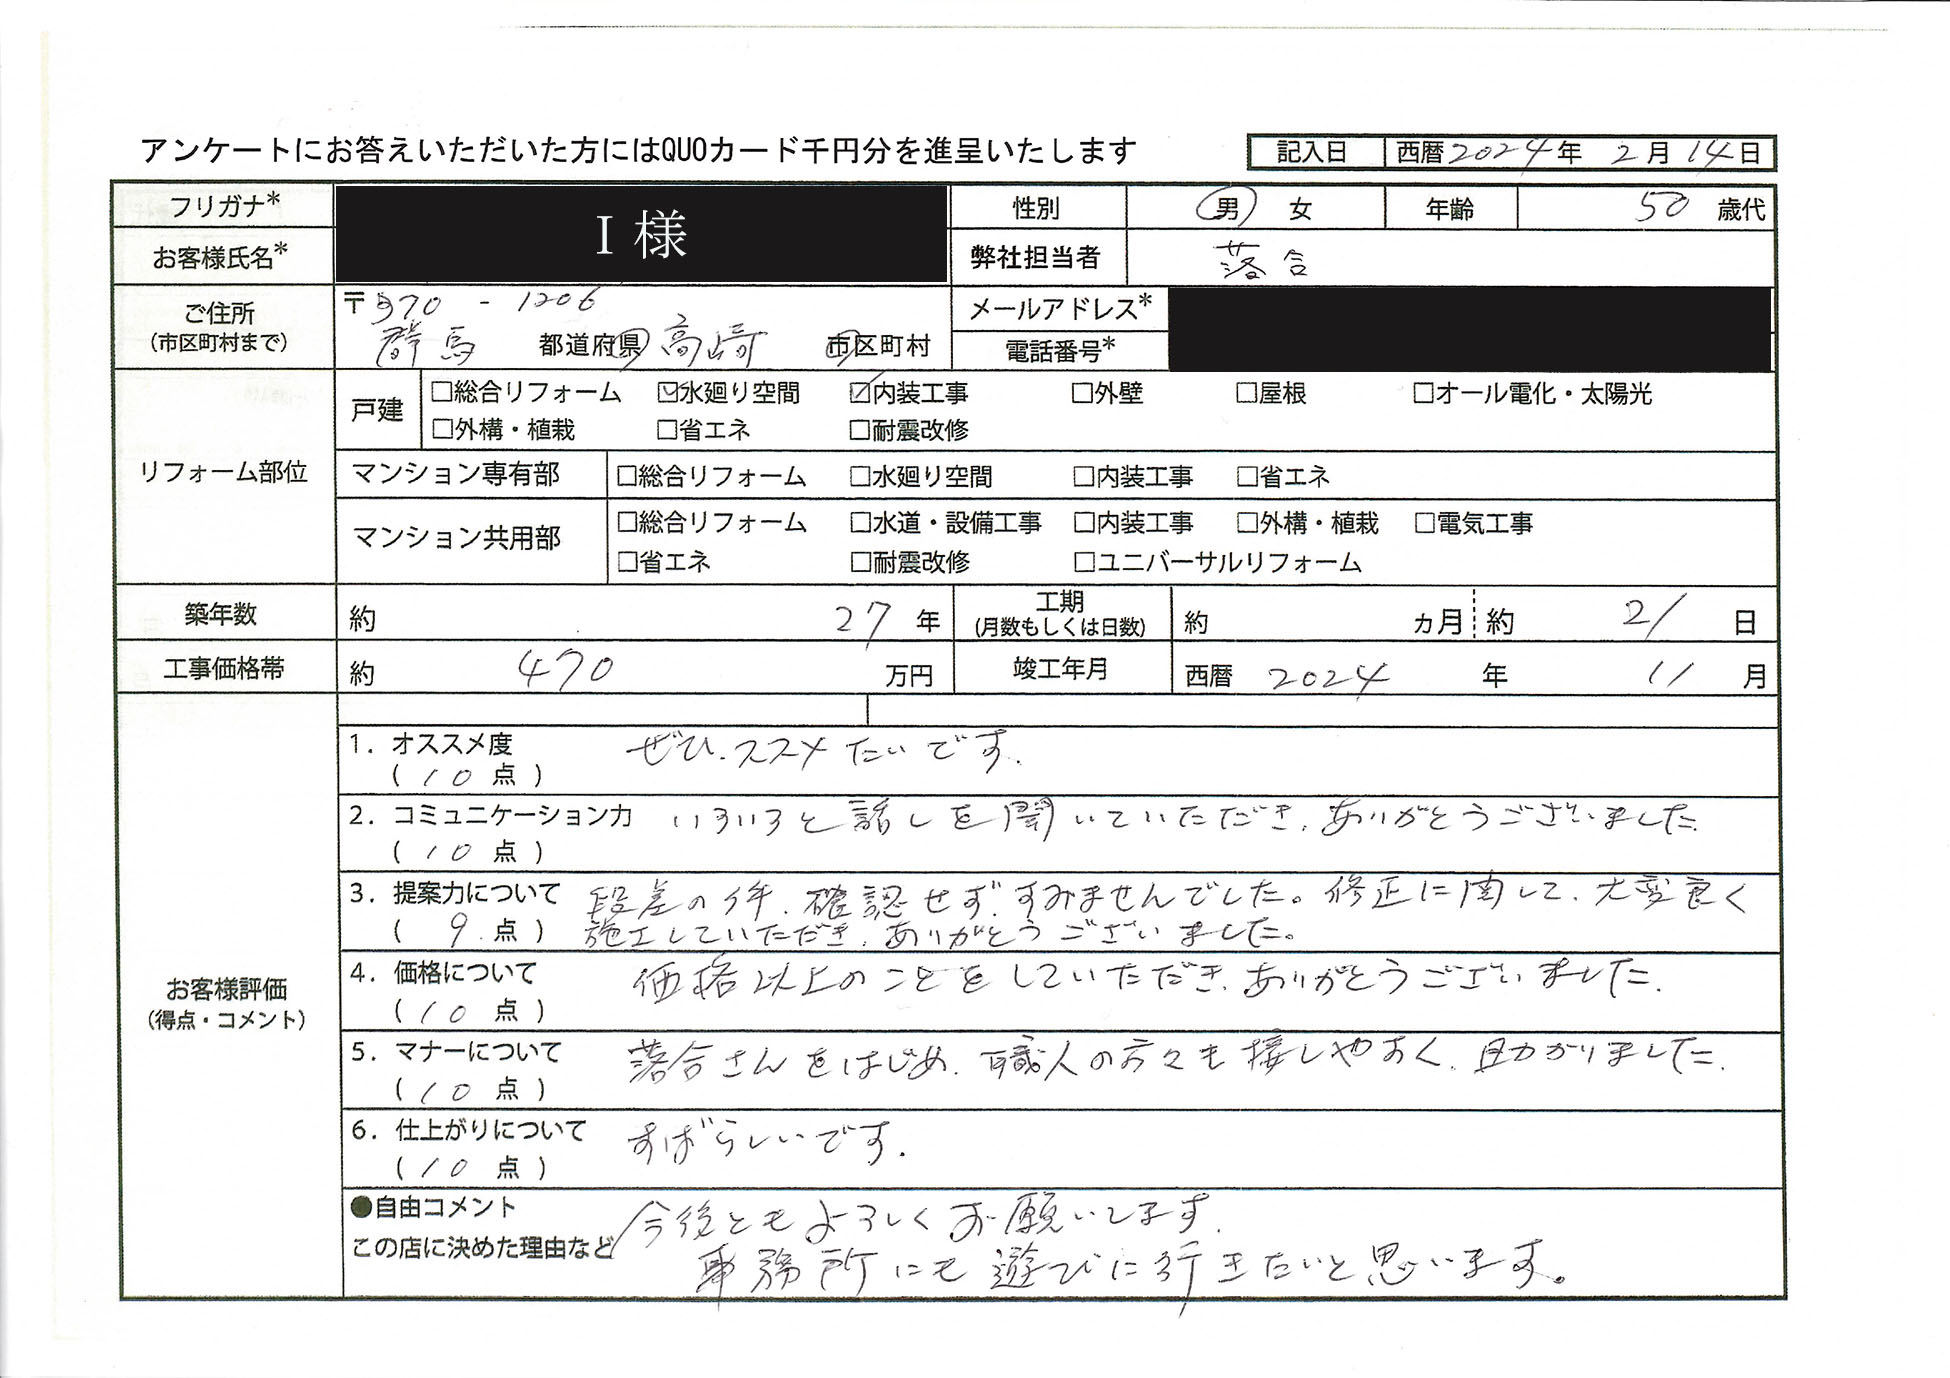 アンケートにお答えいただいた方にはQUOカード千円分を進呈いたします
記入日 西暦2024年 2月14日
フリガナ*
I 様
性別 男 女 年齢 50 歳代
お客様氏名*
弊社担当者 落合
ご住所
(市区町村まで)
〒370 - 1206
群馬 都道府県 高崎 市区町村
メールアドレス*
電話番号*
リフォーム部位
戸建
□総合リフォーム ☑水廻り空間 ☑内装工事 □外壁 □屋根 □オール電化・太陽光
□外構・植栽 □省エネ □耐震改修
マンション専有部 □総合リフォーム □水廻り空間 □内装工事 □省エネ
マンション共用部
□総合リフォーム □水道・設備工事 □内装工事 □外構・植栽 □電気工事
□省エネ □耐震改修 □ユニバーサルリフォーム
築年数 約 27 年
工期
(月数もしくは日数)
約 ヵ月 約 21 日
工事価格帯 約 470 万円 竣工年月 西暦 2024 年 11 月
お客様評価
(得点・コメント)
1. オススメ度 ぜひ、ススメたいです。
( 10 点 )
2. コミュニケーション力 いろいろと話しを聞いていただき、ありがとうございました
( 10 点 )
3. 提案力について 段差の件、確認せず、すみませんでした。修正に関して、大変良く
( 9 点 ) 施工していただき、ありがとうございました。
4. 価格について 価格以上のことをしていただき、ありがとうございました。
( 10 点 )
5. マナーについて 落合さんをはじめ、職人の方々も接しやすく、助かりました。
( 10 点 )
6. 仕上がりについて すばらしいです。
( 10 点 )
●自由コメント 今後ともよろしくお願いします。
この店に決めた理由など 事務所にも遊びに行きたいと思います。